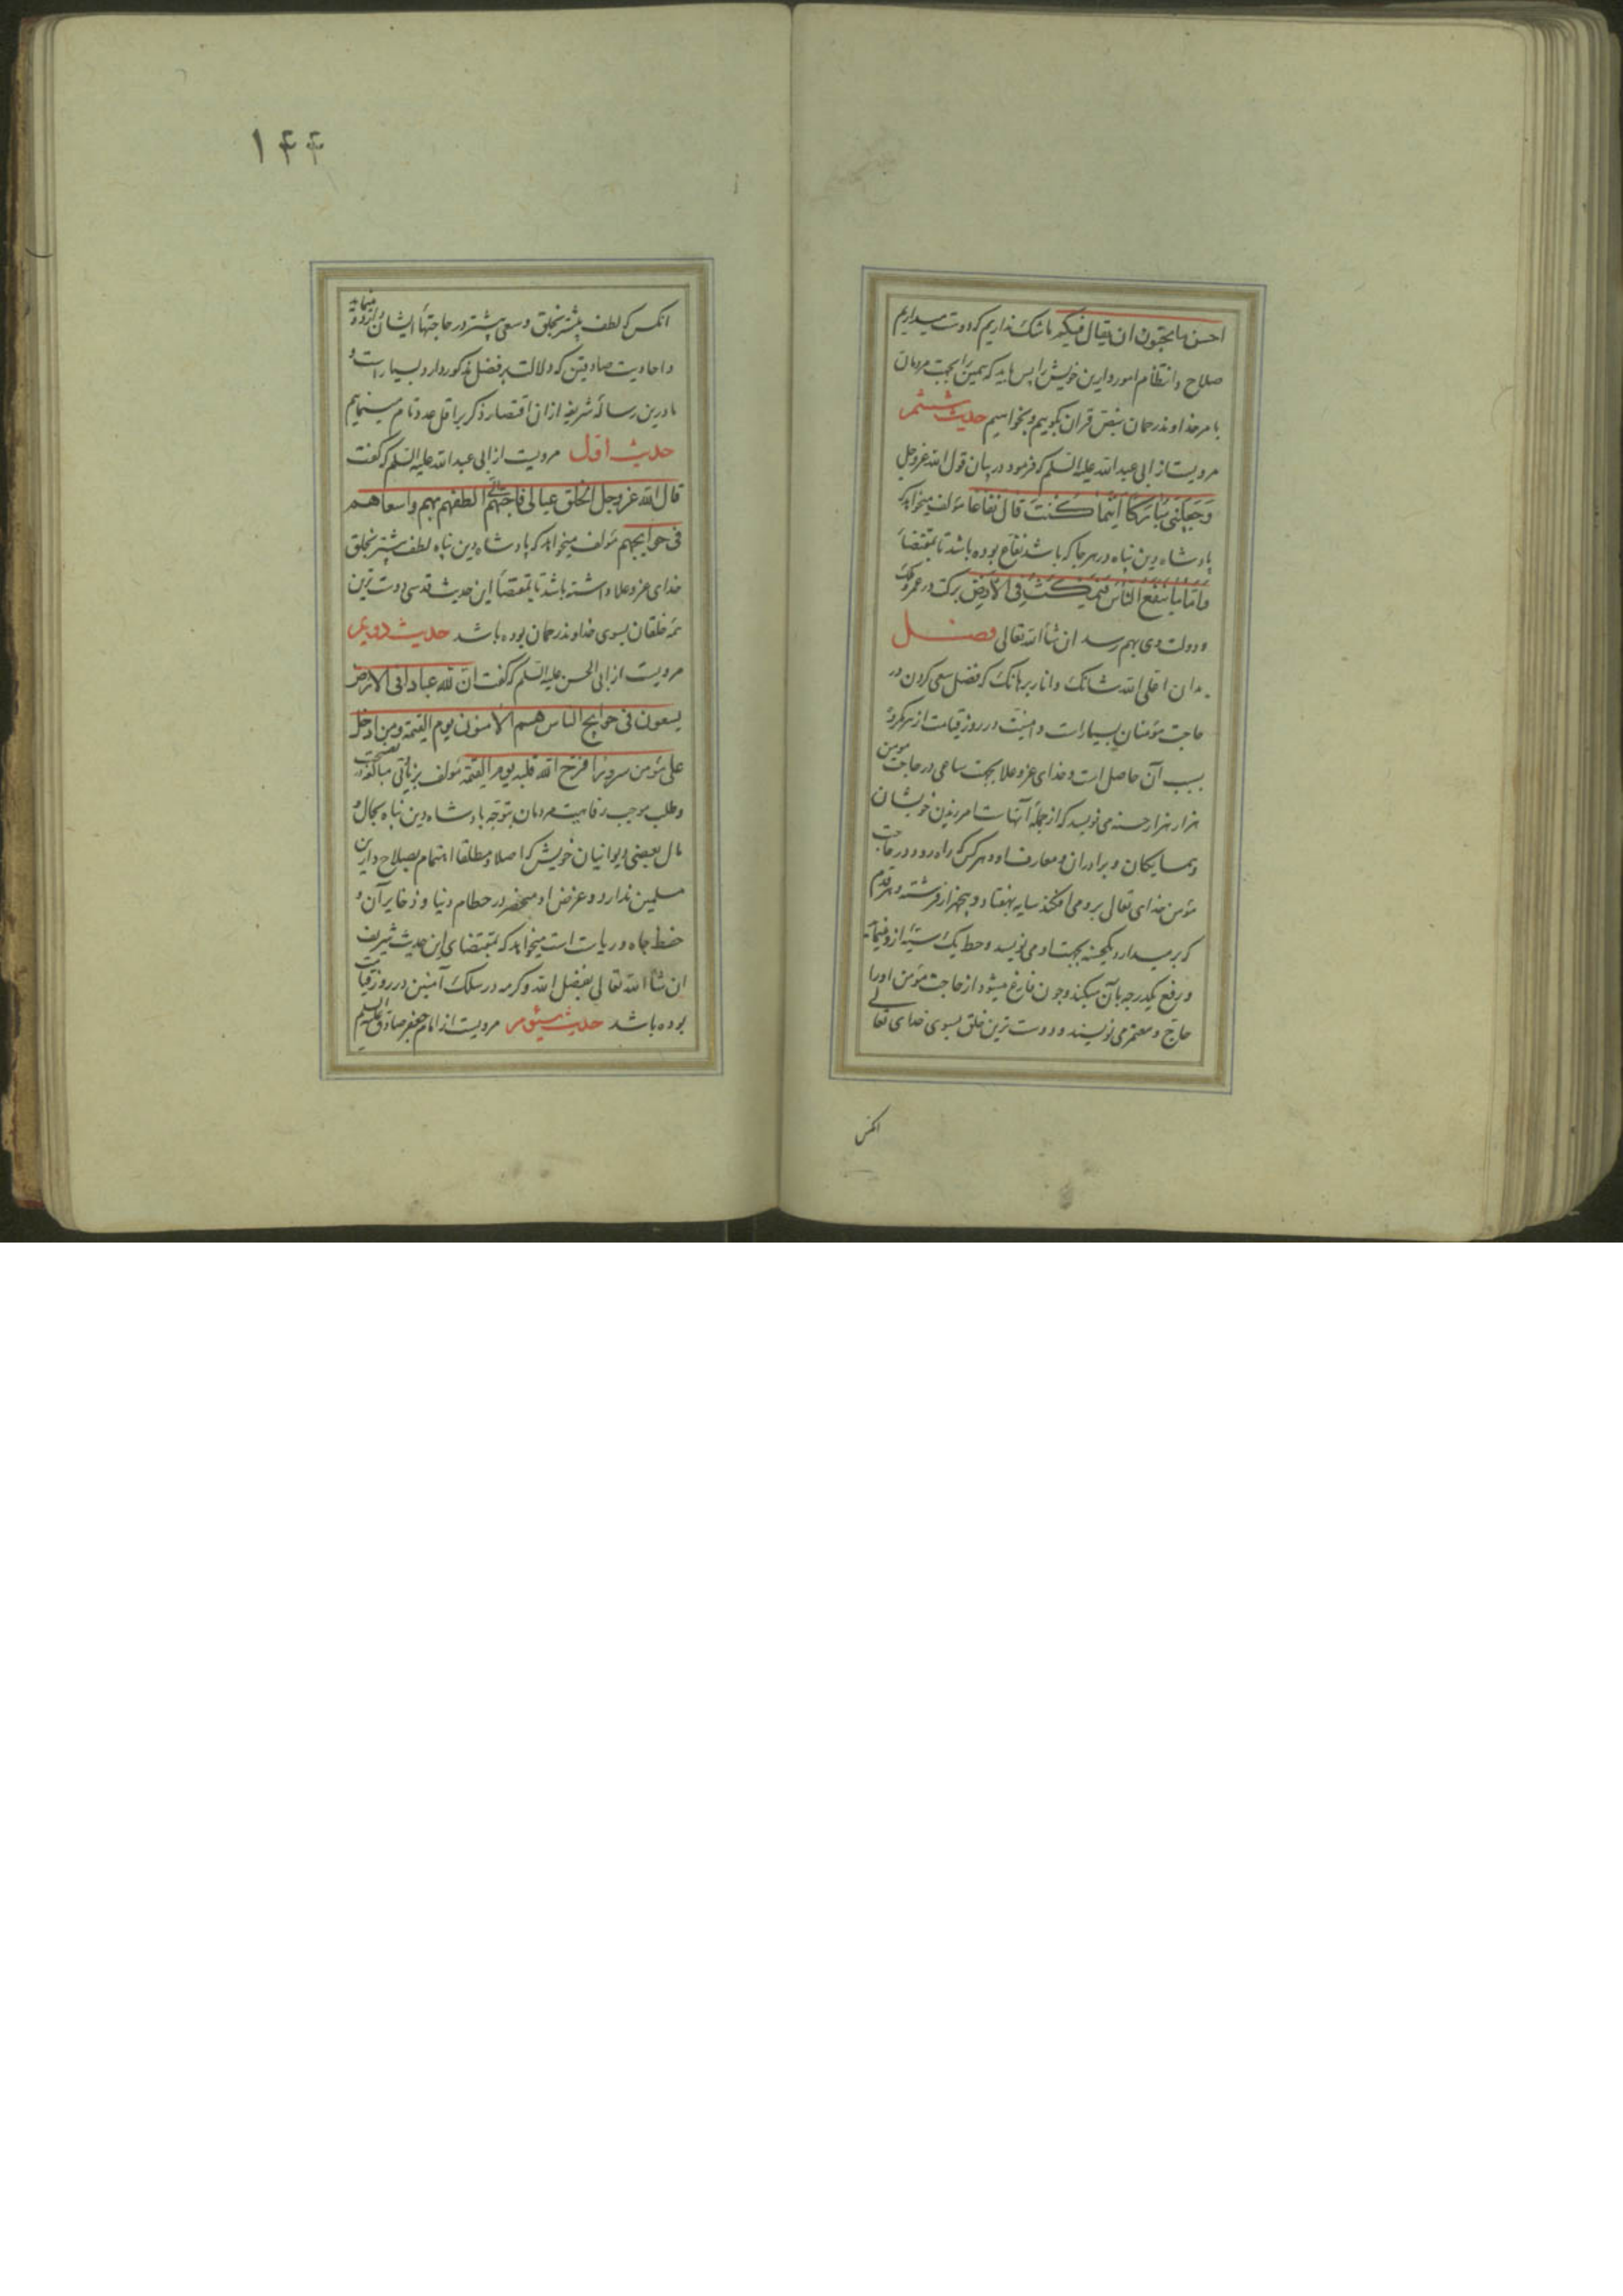 احسن ما تحبون ان یقال فیکم ما شک نداریم که دوست میداریم
صلاح و انتظام امور دارین خویش را پس باید که همین را بجهت مردمان
بامر خداوند رحمان بنص قران بکوییم و بخواهیم حدیث ششم
مرویست از ابی عبدالله علیه السلم که فرمود در بیان قول الله عزوجل
وَجَعَلَنی مُبَارَکًا اَیْنَمَا کُنْتُ قال نفاعا مؤلف میخواهد که
پادشاه دین پناه در هر جا که باشد نفاع بوده باشد تا بمقتضاء
وَاَمّا مَا یَنْفَعُ النّاسَ فَیَمْکُثُ فِی الْاَرْضِ برکت در عمر و ملک
و دولت وی بهم رسد ان شاء الله تعالی فصل
بدان اعلی الله شانک و انار برهانک که فضل سعی کردن در
حاجت مؤمنان بسیار است و امنیت در روز قیامت از هر کروه
بسبب آن حاصل است و خدای عزوعلا بجهت ساعی در حاجت مومن
هزار هزار حسنه می نویسد که از جملهٔ آنهاست امرزیدن خویشان
و همسایکان و برادران و معارف او و هر کس که راه رود در حاجت
مؤمن خدای تعالی بر وی می افکند سایه بهفتاد و پنجهزار فرشته و هر قدم
که بر میدارد یکحسنه بجهت او می نویسد و حط یک سیئه ازو مینماید
و رفع یکدرجه بآن میکند و چون فارغ میشود از حاجت مؤمن او را
حاج و معتمر می نویسند و دوست ترین خلق بسوی خدای تعالی
انکس
۱۴۴
انکس که لطف بیشتر بخلق و سعی بیشتر در حاجتهاء ایشان مینماید
و احادیث صادقین که دلالت بر فضل مذکور دارد بسیار است و
ما درین رسالهٔ شریفه ازان اقتصار ذکر بر اقل عدد تام مینماییم
حدیث اول مرویست از ابی عبدالله علیه السلم که گفت
قال الله عزوجل الخلق عیالی فاحبهم الی الطفهم بهم واسعاهم
فی حوایجهم مؤلف میخواهد که پادشاه دین پناه لطف بیشتر بخلق
خدای عزوعلا داشته باشد تا بمقتضاء این حدیث قدسی دوست ترین
همه خلقان بسوی خداوند رحمان بوده باشد حدیث دویم
مرویست از ابی الحسن علیه السلم که گفت ان لله عبادا فی الارض
یسعون فی حوایج الناس هم الامنون یوم القیمة ومن ادخل
علی مؤمن سرورا فرح الله قلبه یوم القیمة مؤلف بزبانی مبالغه در نصیحت
و طلب موجب رفاهیت مردمان بتوجه پادشاه دین پناه بحال و
مال بعضی دیوانیان خویش که اصلا و مطلقا اهتمام بصلاح دارین
مسلمین ندارد و غرض او منحصر در حطام دنیا و ذخایر آن و
حفظ جاه و ریاست است میخواهد که بمقتضای این حدیث شریف
ان شاء الله تعالی بفضل الله وکرمه در سلک آمنین در روز قیامت
بوده باشد حدیث سیوم مرویست از امام جعفر صادق علیه السلم